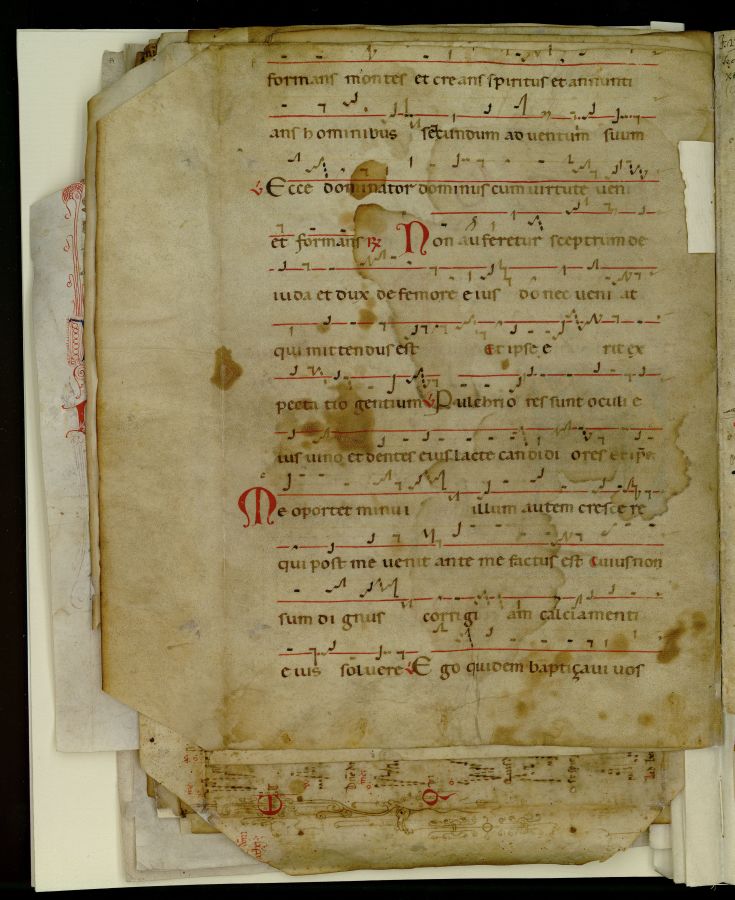 formans montes et creans spiritus et annunti
ans hominibus secundum adventum suum
Ecce dominator dominus cum virtute veni
et formans R Non auferetur sceptrum de
iuda et dux de femore eius donec veni at
qui mittendus est Et ipse e rit ex
pecta tio gentium Pulchrio res sunt oculi e
ius vino et dentes eius lacte candidi ores Et ipse
Me oportet minui illum autem cresce re
qui post me venit ante me factus est Cuius non
sum di gnus corrigi am calciamenti
eius solvere Ego quidem baptiçavi vos